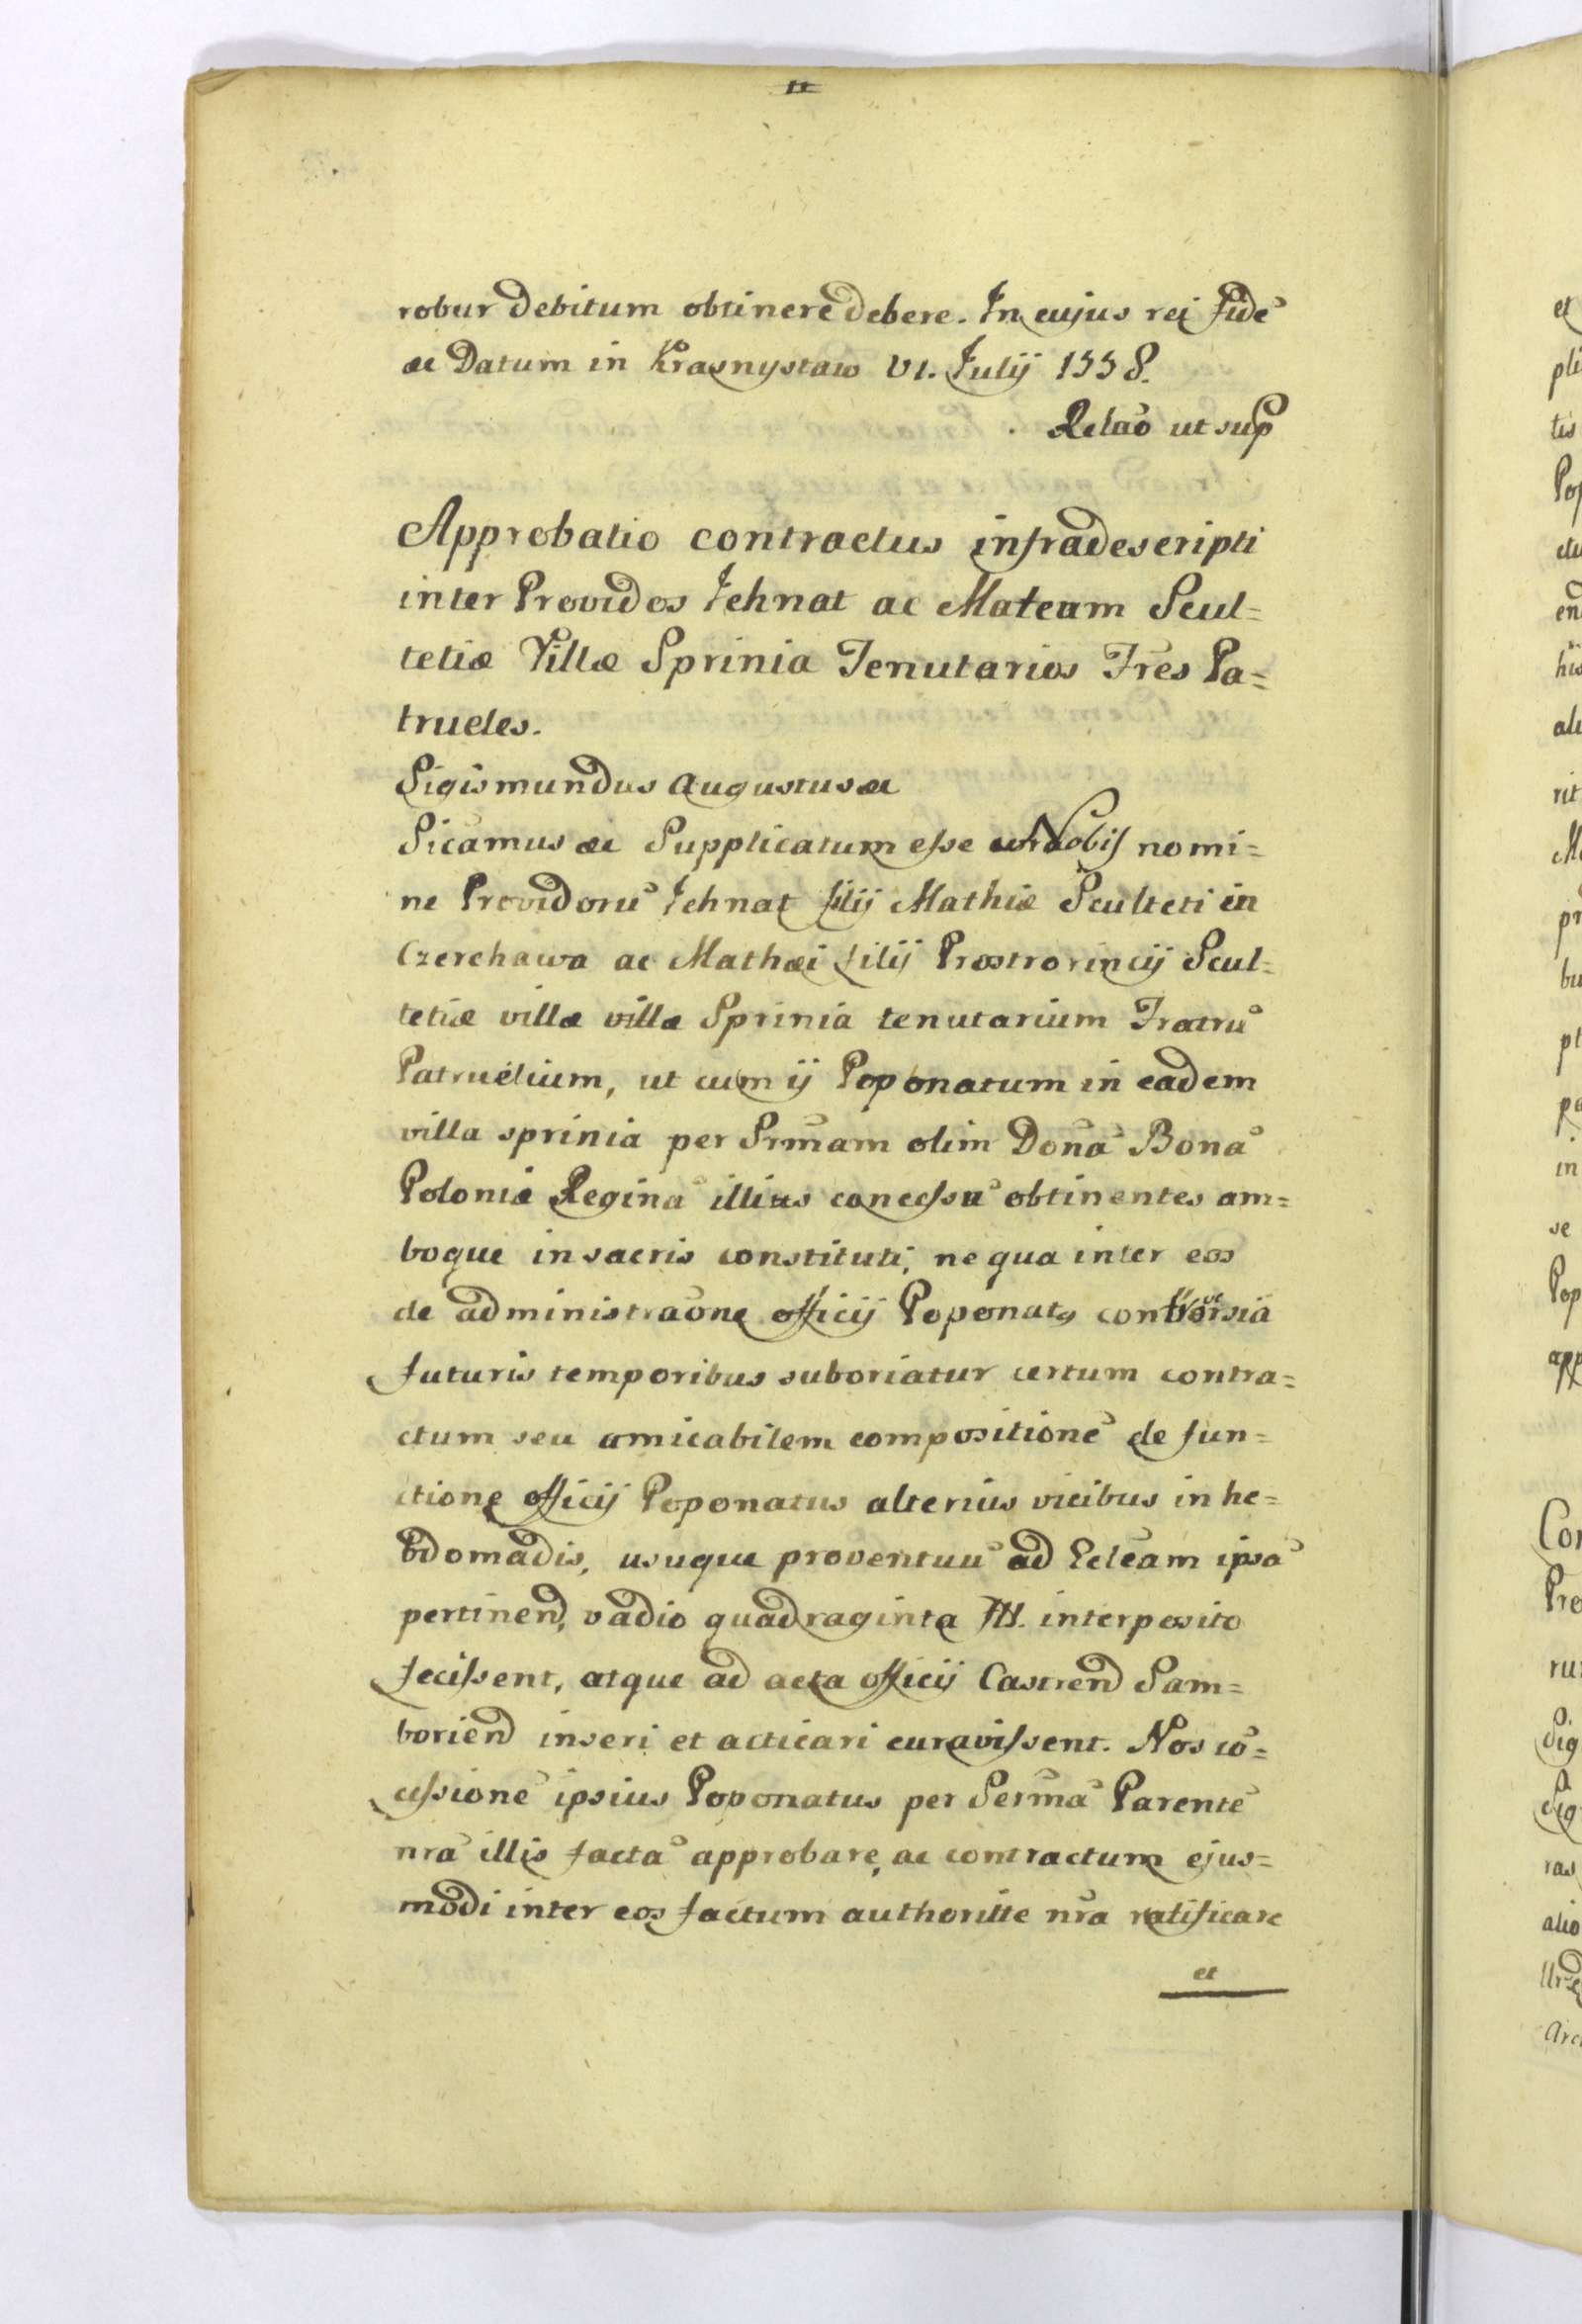 robur debitum obtinere debere. In cujus rei fidē
ac Datum in Krasnystaw VI. Julij 1558.
Relaō ut sup
Approbatio contractus infradescripti
inter Providos Iehnat ac Mateam Scul=
tetiæ Villæ Sprinia Tenutarios Frēs Pa=
trueles.
Sigismundus Augustus ac
Sicāmus ac Supplicatum esse Nobis nomi=
ne Providorū Iehnat filij Mathiæ Sculteti in
Czerchawa ac Mathæi filij Prostrorincij Scul=
tetiæ villæ villæ Sprinia tenutarium Fratrū
Patruelium, ut cum ij Poponatum in eadem
villa sprinia per Srmam olim Donā Bonā
Poloniæ Reginā illius conecssū obtinentes am=
boque in sacris constituti, ne qua inter eos
de administraōne officij Poponatus controversia
futuris temporibus suboriatur certum contra=
ctum seu amicabilem compositionē de fun=
ctione officij Poponatus alterius vicibus in he=
bdomadis, usuque proventuū ad Eclēam ipsā
pertinen, vadio quadraginta M. interposito
fecissent, atque ad acta officij Castren Sam=
borien inseri et acticari curavissent. Nos cō=
cessionē ipsius Poponatus per Sermā Parentē
nrā illis factā approbare, ac contractum ejus=
modi inter eos factum authoritte nrā ratificare
et